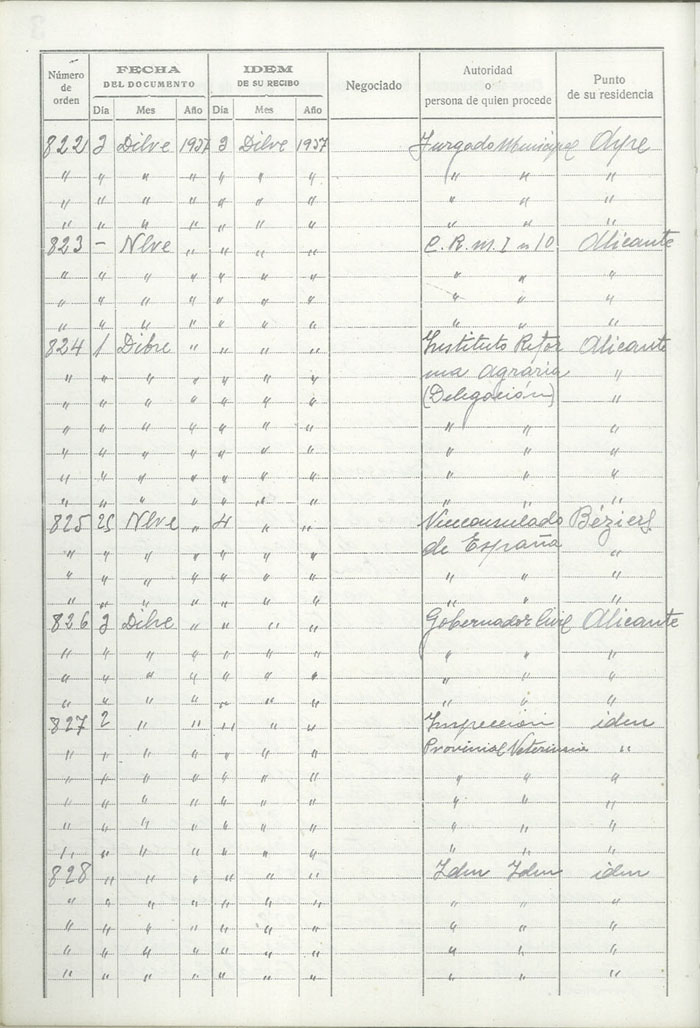 Número de orden | FECHA DEL DOCUMENTO | IDEM DE SU RECIBO | Negociado | Autoridad o persona de quien procede | Punto de su residencia
Día | Mes | Año | Día | Mes | Año
822 3 Dibre 1937 3 Dibre 1937 Juzgado Municipal Aspe
" " " " " " " " " "
" " " " " " " " " "
" " " " " " " " " "
823 – Nbre " " " " C. R. M. I n 10 Alicante
" " " " " " " " " "
" " " " " " " " " "
" " " " " " " " " "
824 1 Dibre " " " " Instituto Refor Alicante
" " " " " " " ma Agraria "
" " " " " " " (Delegación) "
" " " " " " " " " "
" " " " " " " " " "
" " " " " " " " " "
" " " " " " " " " "
825 25 Nbre " 4 " " Viceconsulado Béziers
" " " " " " " de España "
" " " " " " " " " "
" " " " " " " " " "
826 3 Dibre " " " " Gobernador Civil Alicante
" " " " " " " " " "
" " " " " " " " " "
" " " " " " " " " "
827 2 " " " " " Inspección idem
" " " " " " " Provincial Veterinaria "
" " " " " " " " " "
" " " " " " " " " "
" " " " " " " " " "
" " " " " " " " " "
828 " " " " " " Idem Idem idem
" " " " " " " " " "
" " " " " " " " " "
" " " " " " " " " "
" " " " " " " " " "